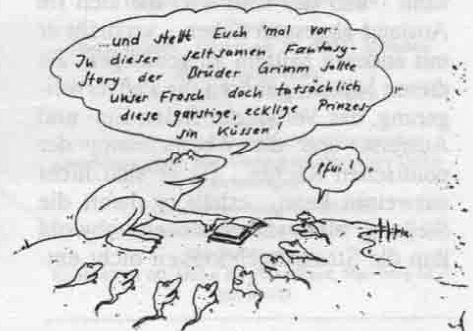 ...und stellt Euch 'mal vor
In dieser seltsamen Fantasy-
Story der Brüder Grimm sollte
unser Frosch doch tatsächlich
diese garstige, ecklige Prinzes-
sin Küssen!
Pfui!